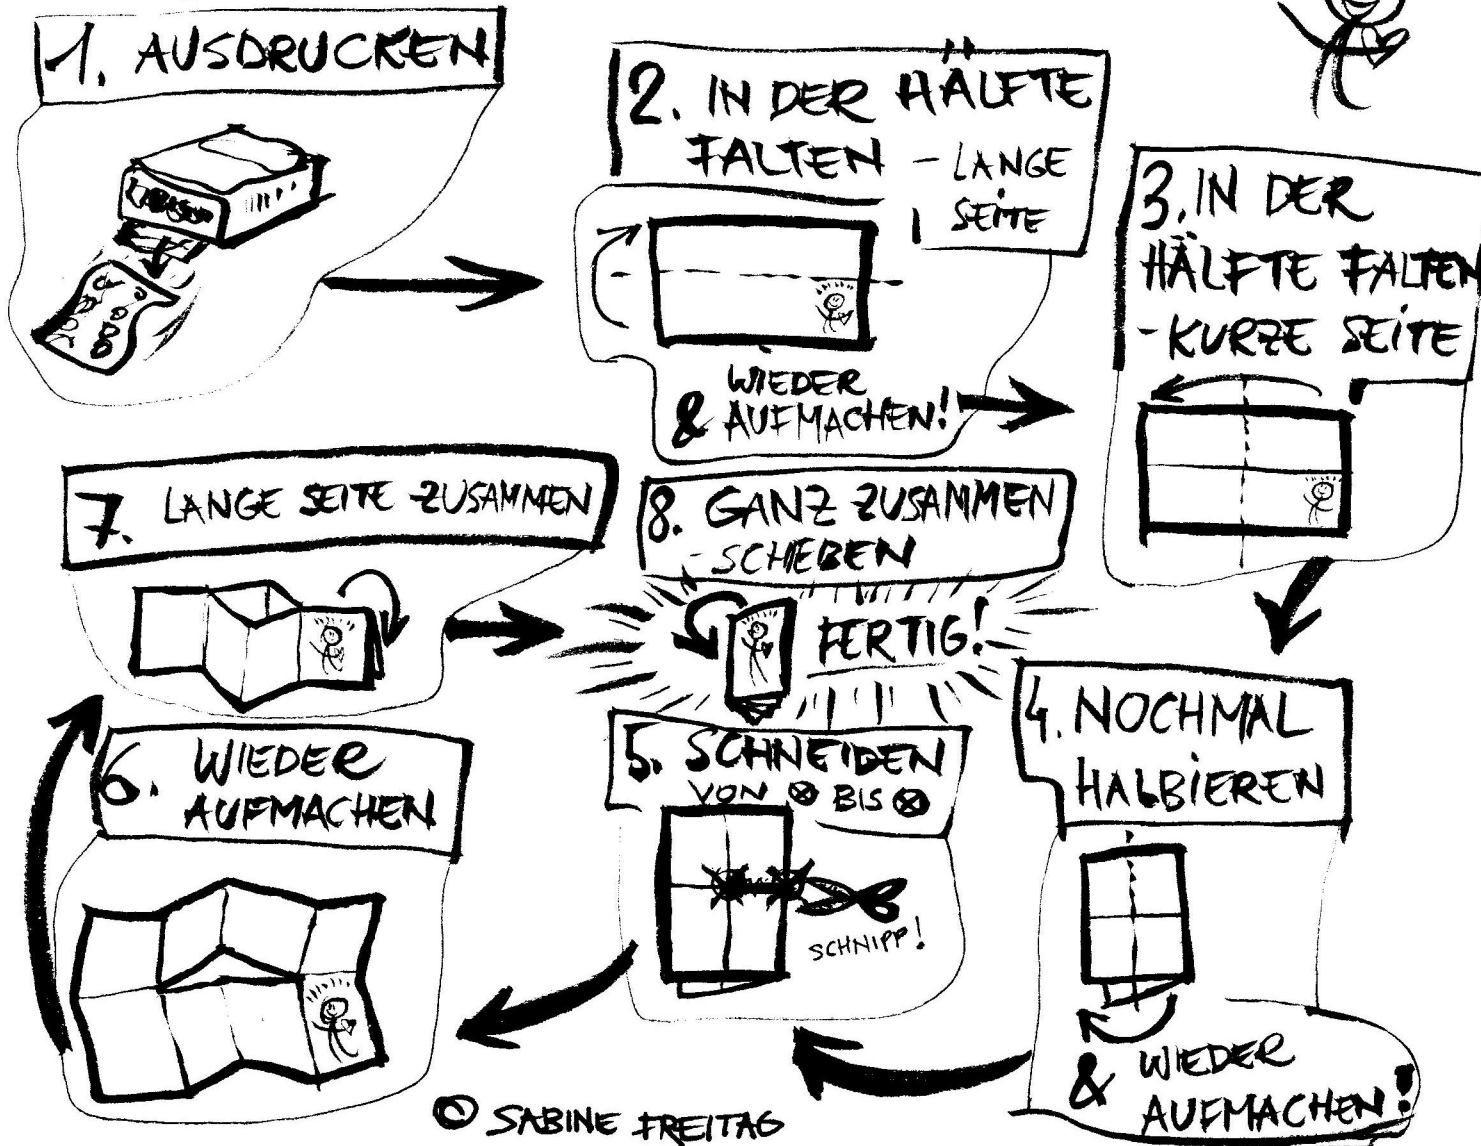 1. AUSDRUCKEN
2. IN DER HÄLFTE
FALTEN - LANGE
SEITE
WIEDER
& AUFMACHEN!
3. IN DER
HÄLFTE FALTEN
- KURZE SEITE
4. NOCHMAL
HALBIEREN
& WIEDER
AUFMACHEN!
5. SCHNEIDEN
VON ⊗ BIS ⊗
SCHNIPP!
6. WIEDER
AUFMACHEN
7. LANGE SEITE ZUSAMMEN
8. GANZ ZUSAMMEN
- SCHIEBEN
FERTIG!
© SABINE FREITAG